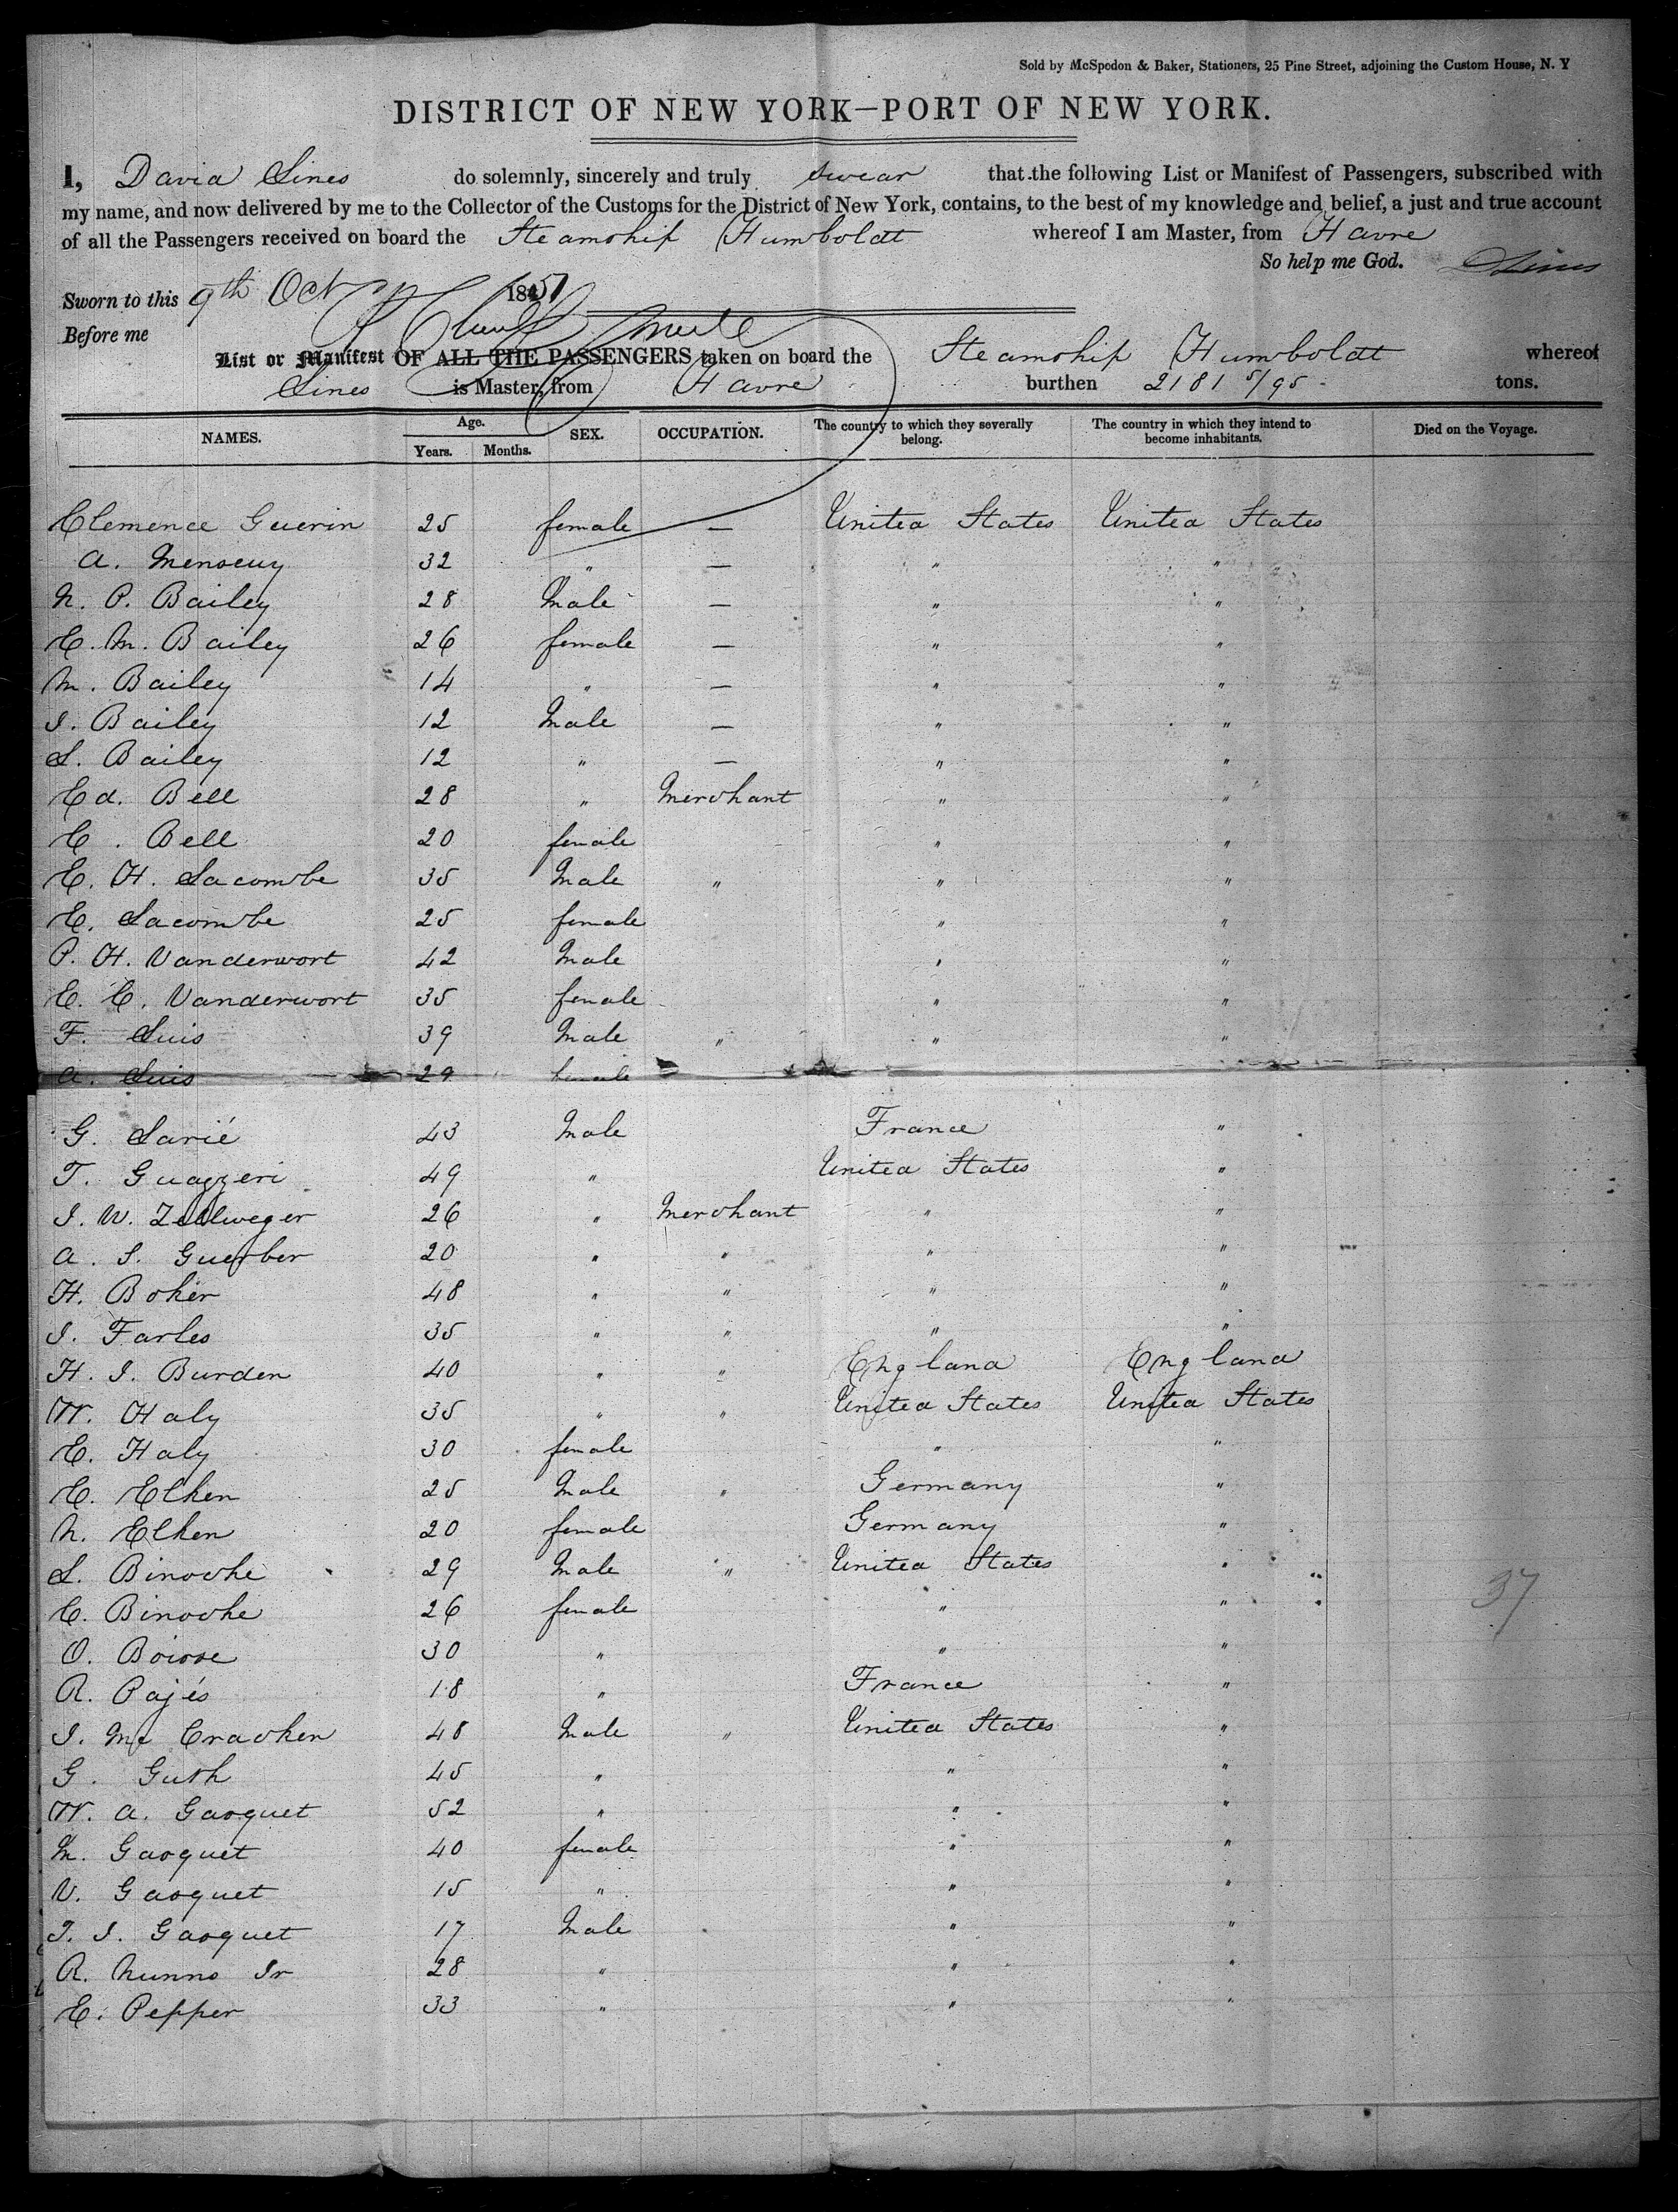 Sold by McSpedon & Baker, Stationers, 25 Pine Street, adjoining the Custom House, N. Y
DISTRICT OF NEW YORK—PORT OF NEW YORK.
I, David Lines do solemnly, sincerely and truly swear that the following List or Manifest of Passengers, subscribed with
my name, and now delivered by me to the Collector of the Customs for the District of New York, contains, to the best of my knowledge and belief, a just and true account
of all the Passengers received on board the Steamship Humboldt whereof I am Master, from Havre
So help me God. D Lines
Sworn to this 9th Oct 1851
Before me
List or Manifest OF ALL THE PASSENGERS taken on board the Steamship Humboldt whereof
Lines is Master, from Havre burthen 2181 5/95 tons.
NAMES. Age. Years. Months. SEX. OCCUPATION. The country to which they severally belong. The country in which they intend to become inhabitants. Died on the Voyage.
Clemence Guerin 25 female — United States United States
A. 32 " — " "
N. P. Bailey 28 Male — " "
E. M. Bailey 26 female — " "
M. Bailey 14 " — " "
J. Bailey 12 Male — " "
L. Bailey 12 " — " "
Ed. Bell 28 " Merchant " "
E. Bell 20 female " "
E. H. Lacombe 35 Male " " "
E. Lacombe 25 female " "
P. H. Vanderwort 42 Male " "
E. C. Vanderwort 35 female " "
F. Luis 39 Male " " "
A. Luis 29 female
G. Larié 43 Male France "
T. Guazzeri 49 " United States "
J. W. Zellweger 26 " Merchant " "
A. S. Guerber 20 " " " "
H. Boker 48 " " " "
J. Farles 35 " " " "
H. J. Burden 40 " " England England
W. Haly 35 " " United States United States
E. Haly 30 female " "
E. Elken 25 Male " Germany "
N. Elken 20 female Germany "
L. Binoche 29 Male " United States "
C. Binoche 26 female " "
O. Boisse 30 " " "
R. Pajés 18 " France "
J. Mc Cracken 48 Male " United States "
G. Guth 45 " " "
W. A. Gasquet 52 " " "
M. Gasquet 40 female " "
V. Gasquet 15 " " "
T. J. Gasquet 17 Male " "
R. Nunns Jr 28 " " "
E. Pepper 33 " " "
37